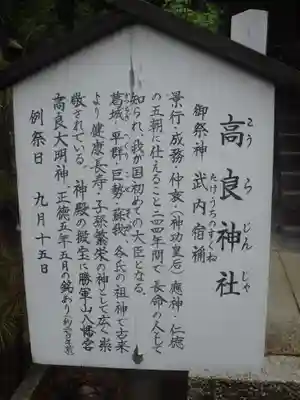 高良神社
こうらじんじゃ
御祭神 武内宿禰
たけうちのすくね
景行・成務・仲哀・(神功皇后)應神・仁徳
の五朝に仕えること二四年間で長命の人として
知られ、我が国初めての大臣となる。
葛城、平群、巨勢、蘇我、各氏の祖神で古来
より健康長寿・子孫繁栄の神として広く崇
敬されている。神殿の擬宝に勝軍山八幡宮
高良大明神、正徳五年五月の銘あり
例祭日 九月十五日